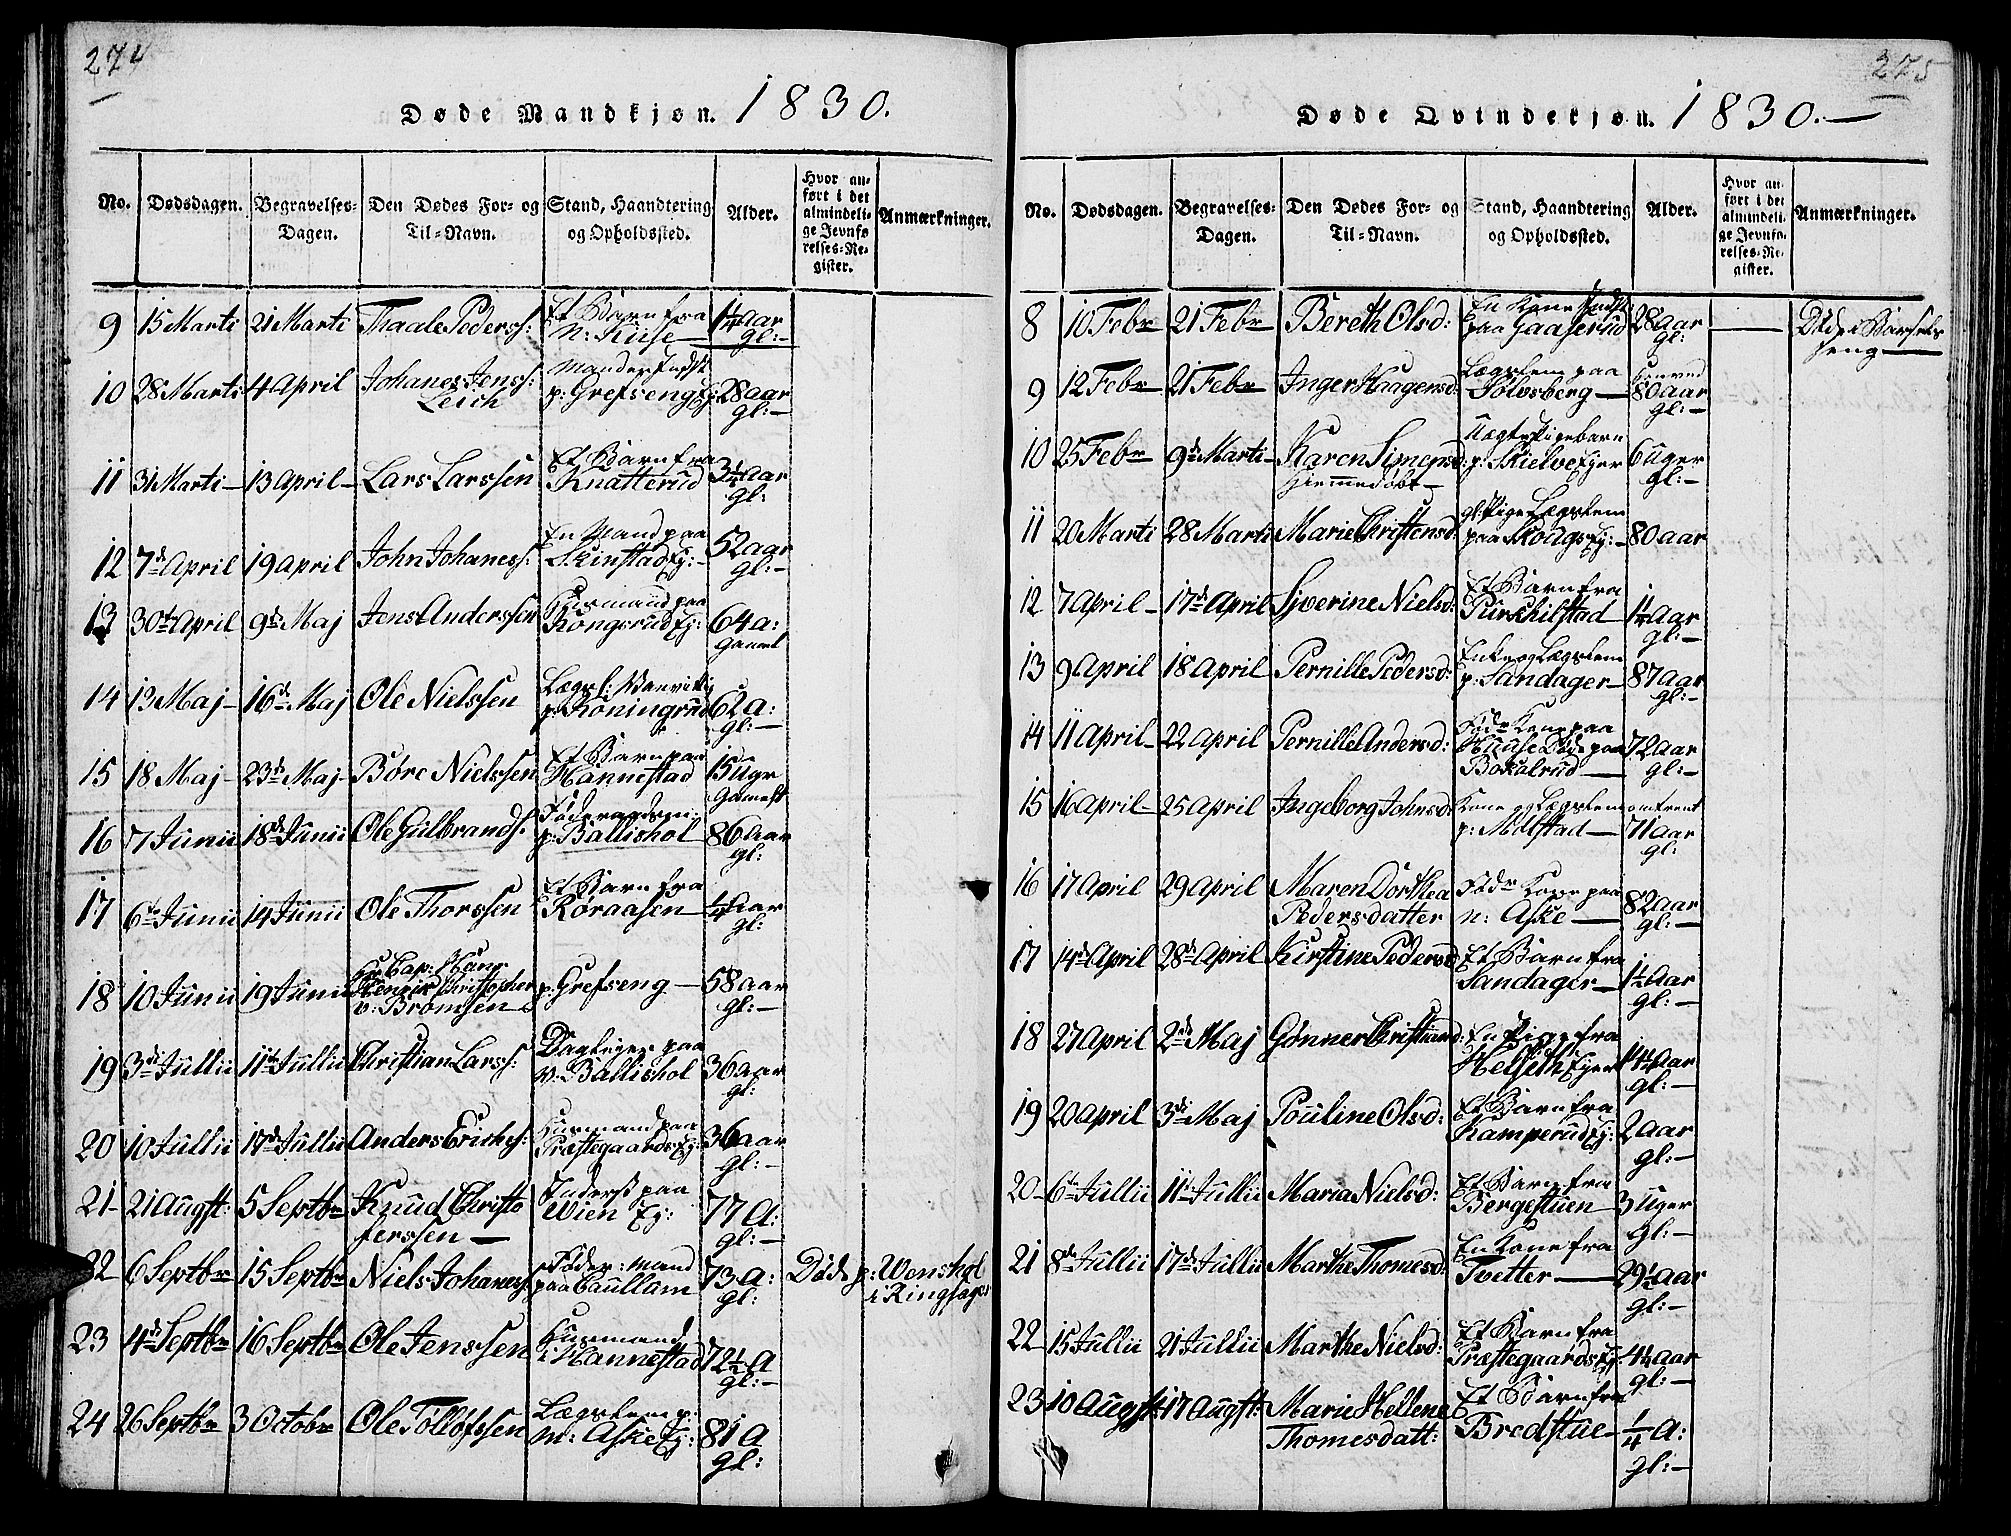 274
Døde Mandkjøn. 1830.
No. Dødsdagen. Begravelses-Dagen. Den Dødes For- og Til-Navn. Stand, Haandtering og Opholdssted. Alder. Hvor anført i det almindelige Jevnførelses-Register. Anmærkninger.
9 15 Marti 21 Marti Thaale Pederss: Et Barn fra n: Kiise 1/4 aar gl:
10 28 Marti 4 April Johanes Jenss: Leich p: Grefseng Ej: 28 aar gl:
11 31 Marti 13 April Lars Larssen Et Barn fra Knatterud 3 1/4 aar gl:
12 7de April 19 April John Johaness: En Mand paa Skinstad Ej: 52 aar gl:
13 30te April 9de Maj Jens Anderssen Husmand paa Kongsrud Ej: 64 a: Gamel
14 13 Maj 16de Maj Ole Nielssen Lægsl: Vanvittig p: Koningrud 62 a: gl:
15 18 Maj 23de Maj Børe Nielssen Et Barn paa Hannestad 15 Ugr Gamelt
16 7 Junii 18de Junii Ole Gulbrands: p: Ballishol 86 aar gl:
17 6te Junii 14 Junii Ole Thorssen Et Barn fra Røraasen 1/4 aar gl:
18 10 Junii 19 Junii Cap: Hans Christopher v: Bromsen p: Grefseng 58 aar gl:
19 3de Jullii 11te Jullii Christian Larss: paa v: Ballishol 36 aar gl:
20 10 Jullii 17de Jullii Anders Erichs: Husmand paa Præstegaards Ej: 36 aar gl:
21 21 Augst: 5 Septbr Knud Christoferssen Inderst paa Wien Ej: 77 A: gl:
22 6 Septbr 15 Septbr Niels Johaness: Føder: Mand paa Caullum 73 A: gl: Død p: Wenshol i Ringsager
23 4de Septbr 16 Septbr Ole Jenssen Husmand i Hannestad 72 1/2 A gl:
24 26 Septbr 3 Octobr Ole Tollofssen Lægslem p: m: Aske Ej: 81 A gl:
275
Døde Qvindekjøn. 1830.
No. Dødsdagen. Begravelses-Dagen. Den Dødes For- og Til-Navn. Stand, Haandtering og Opholdssted. Alder. Hvor anført i det almindelige Jevnførelses-Register. Anmærkninger.
8 10 Febr 21 Febr Bereth Olsd: En Kone Inderst paa Gaaserud 28 aar gl: Død i Barselseng
9 12 Febr 21 Febr Inger Haagensd: Lægslem paa Sølvsberg 80 aar gl:
10 25 Febr 9de Marti Karen Simensd: Hiemmedøbt Uægte Pigebarn p: Skielve Ejer 6 Uger gl:
11 20 Marti 28 Marti Marie Christensd: gl: Pige Lægslem paa Skougs Ej: 80 aar
12 7 April 17de April Syverine Nielsd: Et Barn fra Purkhilstad 1/4 Aar gl:
13 9 April 18 April Pernille Pedersd: Enke og Lægslem p: Sandager 87 aar gl:
14 11 April 22 April Pernille Andersd: Kone paa Huuse Død paa Bokalrud 72 aar gl:
15 16 April 25 April Ingeborg Johnsd: Kone og Lægslem p: Molstad omtrent 71 aar gl:
16 17 April 29 April Maren Dorthea Pedersdatter Kone paa n: Aske 82 aar gl:
17 14de April 28de April Kirstine Pedersd: Et Barn fra Sandager 1 1/2 Aar gl:
18 27 April 2de Maj Gønner Christiansd: En Pige fra Helseth Ejer 14 1/4 Aar gl:
19 20 April 3de Maj Pouline Olsd: Et Barn fra Kamperud Ej: 2 aar gl:
20 6te Jullii 11te Jullii Maria Nielsd: Et Barn fra Bergestuen 3 Uger gl:
21 8de Jullii 17de Jullii Marthe Thomesd: En Kone fra Tvetter 29 1/2 Aar gl:
22 15 Jullii 21 Jullii Marthe Nielsd: Et Barn fra Præstegaards Ej: 4 1/4 aar gl:
23 10 Augst: 17 Augst: Marie Hellene Thomesdatt: Et Barn fra Bredstue 1/4 A: gl: